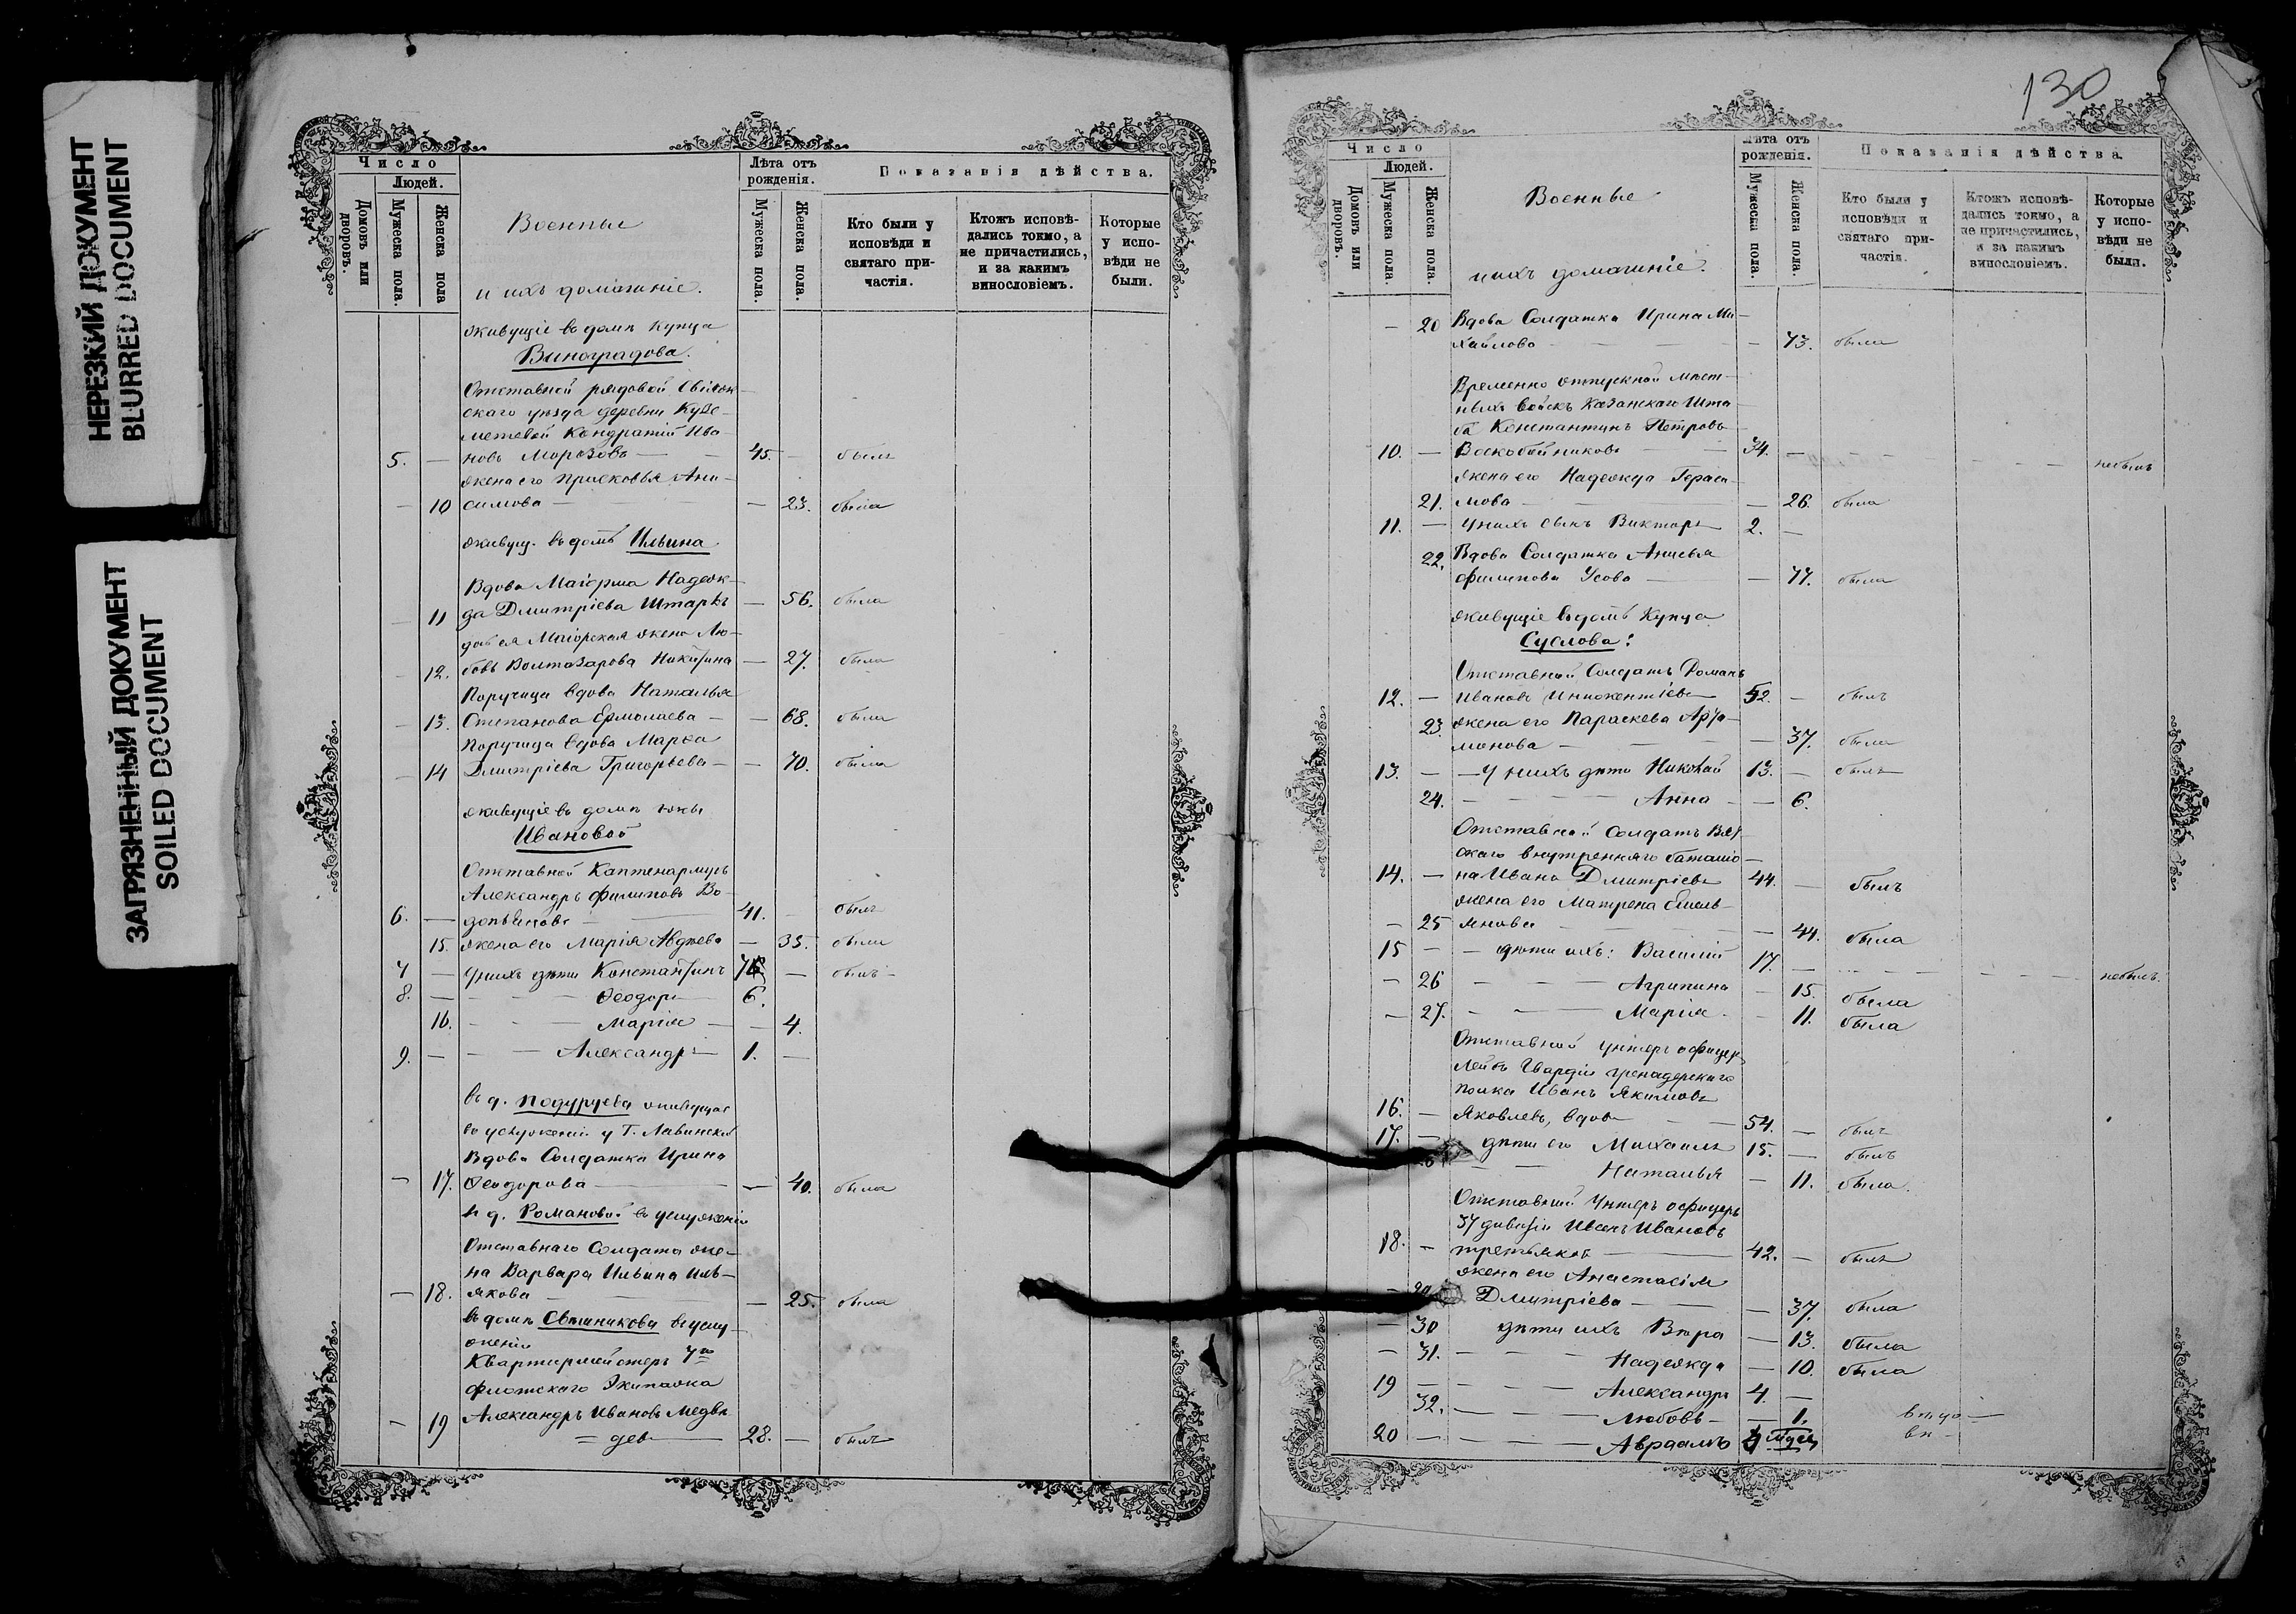 НЕРЕЗКИЙ ДОКУМЕНТ
BLURRED DOCUMENT
ЗАГРЯЗНЕННЫЙ ДОКУМЕНТ
SOILED DOCUMENT
Число
Людей.
Домовъ или дворовъ.
Мужеска пола.
Женска пола
Военные
и ихъ домашніе.
Лѣта отъ рожденія.
Мужеска пола.
Женска пола.
Показанія дѣйства.
Кто были у исповѣди и святаго причастія.
Ктожъ исповѣдались токмо, а не причастились, и за какимъ винословіемъ.
Которые у исповѣди не были.
живущіе въ домѣ купца
Виноградова.
Отставной рядовой Свіяж-
скаго уѣзда деревни Кузе-
метевой Кондратій Ива-
5. — новъ Морозовъ — 45. — былъ
жена его Прасковья Ани-
— 10 симова — — 23. была
живущ. въ домѣ Ильина
Вдова Маіорша Надеж-
— 11 да Дмитріева Штаркъ — 56. была
дочь ея Маіорская жена Лю-
— 12. бовь Волтазарова Никитина — 27. была
Поручица вдова Наталья
— 13. Степанова Ермолаева — — 68. была
Поручица вдова Марѳа
— 14 Дмитріева Григорьева — — 70. была
живущіе въ домѣ
Ивановой
Отставной Каптенармусъ
Александръ Филиповъ Во-
6. — допьяновъ — 41. — былъ
15. жена его Марія Авдѣева — 35. была
7 — у нихъ дѣти Константинъ — былъ
8. — — — Ѳеодоръ 6.
16. — — Марія — — 4.
9. — — — Александръ 1. —
въ д. Подуруева живущая
въ услуженіи у Г. Лавинской
Вдова Солдатка Ирина
— 17. Ѳеодорова — — 40. была
въ д. Романовой въ услуженіи
Отставнаго Солдата же-
на Варвара Ильина Иль-
— 18. якова — — 25. была
въ домѣ Свѣшникова въ услу-
женіи
Квартирмейстеръ 7го
флотскаго Экипажа
Александръ Ивановъ Медвѣ
— 19 = девъ — 28. — былъ
130
Число
Людей.
Домовъ или дворовъ.
Мужеска пола.
Женска пола.
Военные
и ихъ домашніе.
Лѣта отъ рожденія.
Мужеска пола.
Женска пола.
Показанія дѣйства.
Кто были у исповѣди и святаго причастія.
Ктожъ исповѣдались токмо, а не причастились, и за какимъ винословіемъ.
Которые у исповѣди не были.
— 20 Вдова Солдатка Ирина Ми-
хайлова — — 73. была
Временно отпускной мѣст-
ныхъ войскъ Казанскаго Шта-
ба Константинъ Петровъ
10. — Воскобойниковъ — 34. — — — — небылъ
жена его Надежда Гераси-
21. мова — — 26. была
11. — у нихъ сынъ Викторъ 2. —
22. Вдова Солдатка Анисья
Филипова Усова — — 77. была
живущіе въ домѣ Купца
Суслова:
Отставной Солдатъ Романъ
12. — Ивановъ Инокентіевъ 52. — былъ
23. жена его Параскева Арта-
монова — — 37. была
13. — — У нихъ дѣти Николай 13. — былъ
24. — — — Анна — — 6.
Отставной Солдатъ Вят-
скаго внутренняго баталіо-
14. — на Иванъ Дмитріевъ 44. — былъ
жена его Матрена Емель-
— 25 янова — — 44. была
15 — — дѣти ихъ: Василій 17. — — — — небылъ.
— 26 — — — Агрипина — 15. была
— 27. — — — Марія — 11. была
Отставной унтеръ офицеръ
Лейбъ Гвардіи гренадерскаго
полка Иванъ Якимовъ
16. — Яковлевъ, вдовъ — 54. — былъ
17. — дѣти его Михаилъ 15. — былъ
— — Наталья — 11. была.
Отставной Унтеръ офицеръ
37 дивизіи Иванъ Ивановъ
18. — Третьяковъ — 42. — былъ
жена его Анастасія
— Дмитріева — — 37. была
— 30 дѣти ихъ Вѣра — 13. была
— 31. — — — Надежда — 10. была
19 — — — — Александръ 4. —
32. — — — Любовь — — 1.
20 — — — — Авраамъ